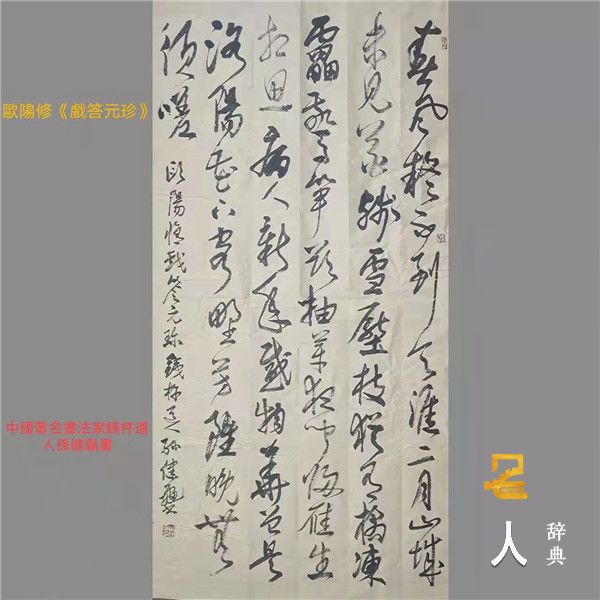 春風疑不到天涯二月山城
未見花殘雪壓枝猶有橘凍
靁驚筍欲抽芽夜聞歸雁生
鄉思病入新年感物華曾是
洛陽花下客野芳雖晚不
須嗟
歐陽修戲答元珍銕杵道人孙健龜書
歐陽修《戲答元珍》
中國著名書法家銕杵道
人孫健龜書
名人辞典